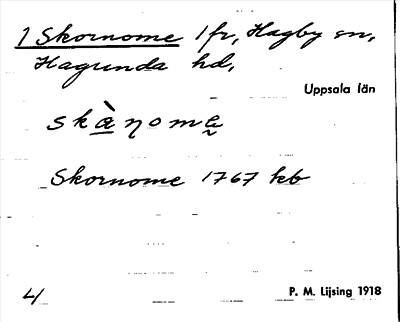 1 Skornome 1 fr, Hagby sn,
Hagunda hd,
Uppsala län
skὰŋomę
Skornome 1767 kb
4/
P. M. Lijsing 1918